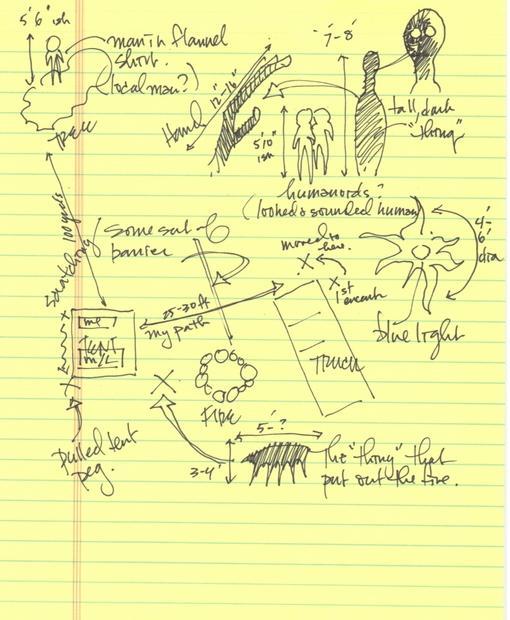 5'6" ish
man in flannel
shirt.
(local man?)
TREE
12"-16"
Hand
7-8'
5'10"
ish
tall, dark
"thing"
humanoids?
(looked & sounded human)
Some sort of
barrier
moved to
here.
1st
4-
6'
dia
blue light
100 yards
25-30 ft
my path
me
TENT
TRUCK
FIRE
Pulled tent
peg.
5'-?
3-4'
the "thing" that
put out the fire.